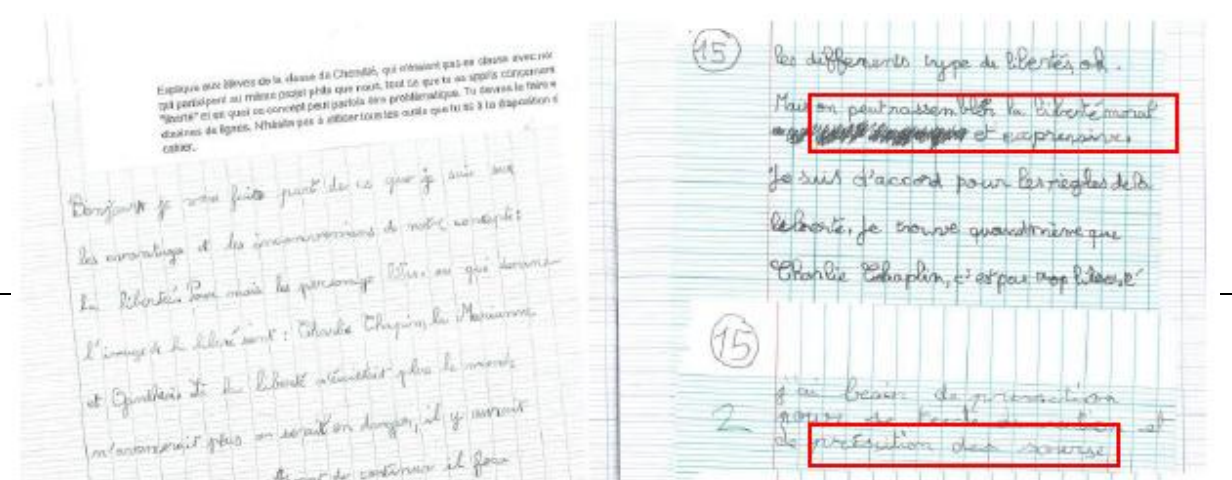 Explique aux élèves de la classe de Chendié, qui n'étaient pas en classe avec nos
qui participent au même projet philo que nous, tout ce que tu as appris concernant
"liberté" et en quoi ce concept peut parfois être problématique. Tu devras le faire e
dizaines de lignes. N'hésite pas à utiliser tous les outils que tu as à ta disposition d
cahier.
Bonjour je vous fait part de ce que je sais sur
les avantage et les inconvéniens de notre concept:
La liberté. Pour mois les personage libre ou qui donne
l'image de la liberé sont : Charlie Chaplin, la Marianne
et Gandhi. Si la liberté n'éxistait plus le monde
n'avancerait plus on serait en danger, il y aurait
de continuer il faux
15
les differents type de libertés ok.
Mais on peut rassembler la liberté moral
et exprensive.
Je suis d'accord pour les règles de la
liberté. Je trouve quand même que
Charlie Chaplin, c'est pas trop liberé
15
j'ai besoin de présaction
2
pour de et
de présition des sourse